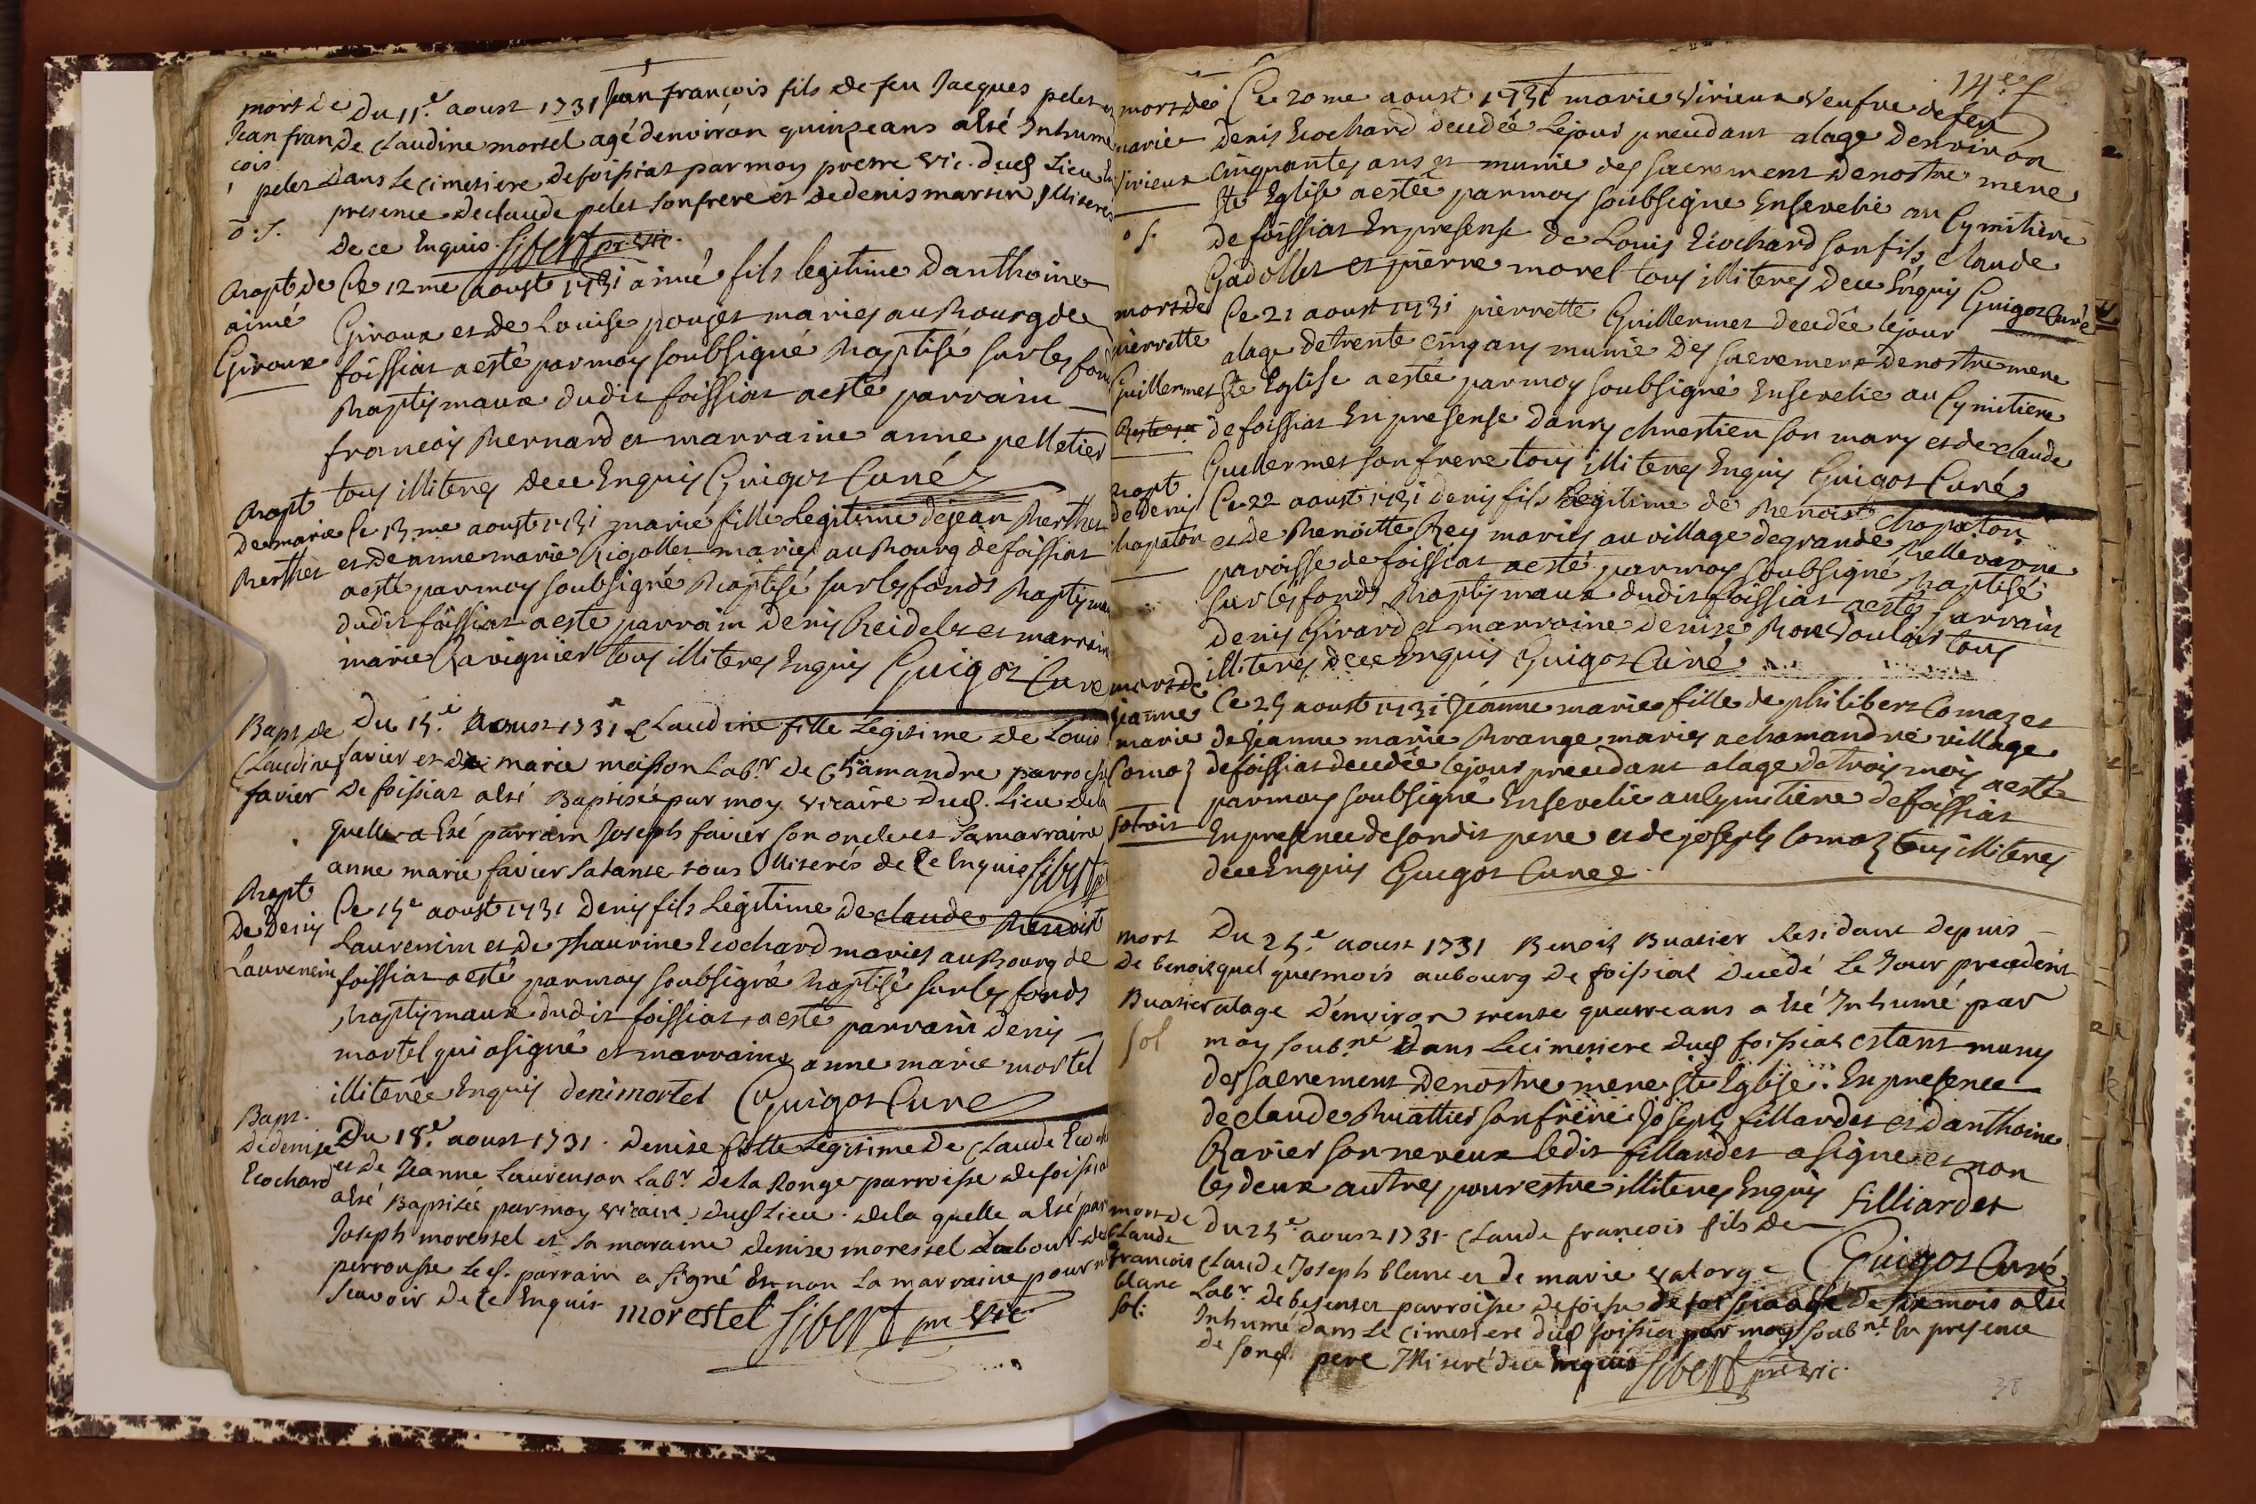 mort de
Jean fran
cois
pelet
o. s.
Du 11.e aoust 1731 Jean françois fils de feu Jacques pelet et
de Claudine mortel agé denviron quinze ans a Esté Inhumé
dans Le Cimetiere de foissiat par moy prestre vic. dud Lieu En
presence de claude pelet son frere et de denis martin Illiterés
de ce Enquis. Sibert pr. vic.
Bapt de
aimé
Giroux
Ce 12me aoust 1731 aimé fils legitime danthoine
Giroux et de Louise pouget mariés au Bourg de
foissiat a esté par moy soubsigné Baptisé sur les fons
Baptismaux dudit foissiat a esté parrain
francois Bernard et marraine anne pelletier
tous illiteres de ce Enquis Guigot Curé
Bapt
de marie
Berthet
Ce 13me aoust 1731 marie fille Legitime de jean Berthet
et de anne marie Rigollet mariés au Bourg de foissiat
a esté par moy soubsigné Baptisé sur les fonds Baptismaux
dudit foissiat a esté parrain denis Reidelet et marraine
marie Ravignier tous illiteres Enquis Guigot Curé
Bapt de
Claudine
favier
Du 15.e Aoust 1731 Claudine fille Legitime de Louis
favier et de marie maisson Labr. de Chamandre parroisse
de foissiat a Esté Baptisée par moy vicaire dud. Lieu de la
quelle a Esté parrain Joseph favier son oncle et sa marraine
anne marie favier sa tante tous Illiterés de Ce Enquis Sibert
Bapt
de denis
Laurencin
Ce 15e aoust 1731 denis fils Legitime de claude Benoist
Laurencin et de Thaurine Ecochard mariés au Bourg de
foissiat a esté par moy soubsigné Baptisé sur les fonds
Baptismaux dudit foissiat, a esté parrain denis
mortel qui a signé et marraine anne marie mortel
illiterée Enquis deni mortel Guigot Curé
Bapt.
de denise
Ecochard
Du 18.e aoust 1731. denise fille Legitime de Claude Ecochard
et de Jeanne Laurenson Labr. de la Ronge parroisse de foissiat
a Esté Baptisée par moy vicaire dud Lieu. de la quelle a Esté par
Joseph morestel et sa maraine denise morestel
perrousse Le d. parrain a signé Et non La marraine pour
scavoir de Ce Enquis morestel Sibert pr vic
14e f
mort de
marie
Virieux
o s.
Ce 20me aoust 1731 marie Virieux Veufve de feu
denis Ecochard decedée Le jour precedant a lage denviron
cinquantes ans et munie des sacrement de nostre mere
Ste Eglise a estée par moy soubsigné Ensevelie au Cymitiere
de foissiat En presense de Louis Ecochard son fils, Claude
Gadollet et pierre morel tous illiteres de ce Enquis Guigot Curé
mort de
pierrette
Guillermet
Ce 21 aoust 1731 pierrette Guillermet decedée le jour
a lage de trente cinq ans munie des sacrement de nostre mere
Ste Eglise a estée par moy soubsigné Ensevelie au Cymitiere
de foissiat En presense danry chrestien son mary et de claude
Guillermet son frere tous illiteres Enquis Guigot Curé
Bapt
de denis
chapaton
Ce 22 aoust 1731 denis fils Legitime de Benoist chapaton
et de Benoitte Rey mariés au village de grande Bellevavre
paroisse de foissiat a esté par moy soubsigné Baptisé
sur les fonds Baptismaux dudit foissiat a esté parrain
denis Girard et marraine denize tous
illiteres de ce Enquis Guigot Curé
mort de
jeanne
marie
Comaz
Ce 25 aoust 1731 Jeanne marie fille de philibert Comaz et
de jeanne marie Brange mariés a chamandré village
de foissiat decedée le jour precedant a lage de trois mois a esté
par moy soubsigné Ensevelie au Cymitiere de foissiat
En presence de sondit pere et de joseph Comaz tous illiteres
de ce Enquis Guigot Curé
mort
de benoit
Buatier
sol
Du 25.e aoust 1731 Benoit Buatier Residant depuis
quel ques mois au bourg de foissiat decedé Le Jour precedent
a lage d'environ trente quatre ans a Esté Inhumé par
moy soub.né dans Le cimetiere dud foissiat estant muny
des sacrement de nostre mere Ste Eglise. En presence
de claude Buattier son frere joseph fillardet et danthoine
Ravier son neveux ledit fillardet a signé et non
les deux autres pour estre illiteres Enquis filliardet
Guigot Curé
mort de
Claude
francois
blanc
sol:
Du 25.e aoust 1731. Claude francois fils de
Claude Joseph blanc et de marie valorge
Labr. de besentet parroisse de foissiat agé de six mois a Esté
Inhumé dans Le Cimetiere dud foissiat par moy soub.né En presence
de sond. pere Illiteré de ce Enquis Sibert pr vic.
38